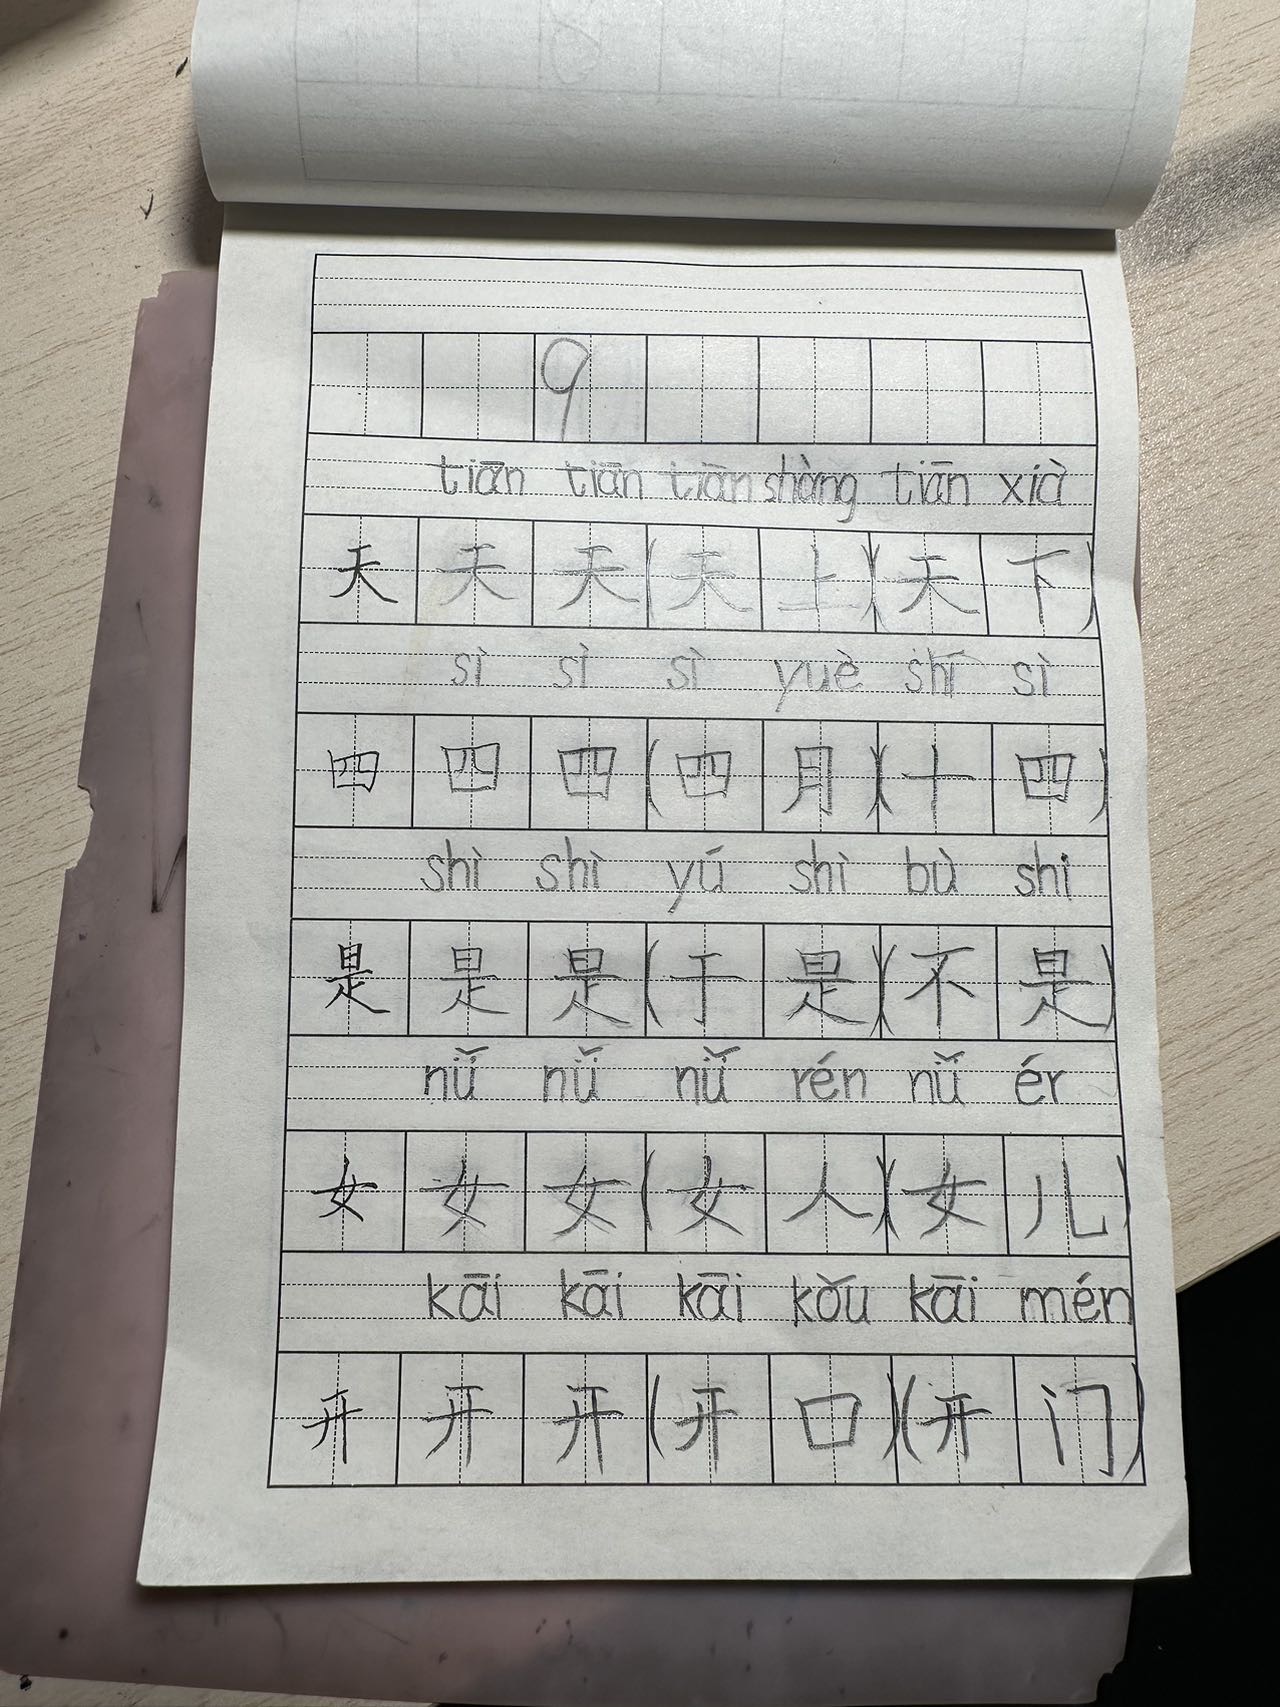 9
tiān tiān tiān shàng tiān xià
天 天 天 (天 上)(天 下)
sì sì sì yuè shí sì
四 四 四 (四 月)(十 四)
shì shì yú shì bù shi
是 是 是 (于 是)(不 是)
nǚ nǚ nǚ rén nǚ ér
女 女 女 (女 人)(女 儿)
kāi kāi kāi kǒu kāi mén
开 开 开 (开 口)(开 门)